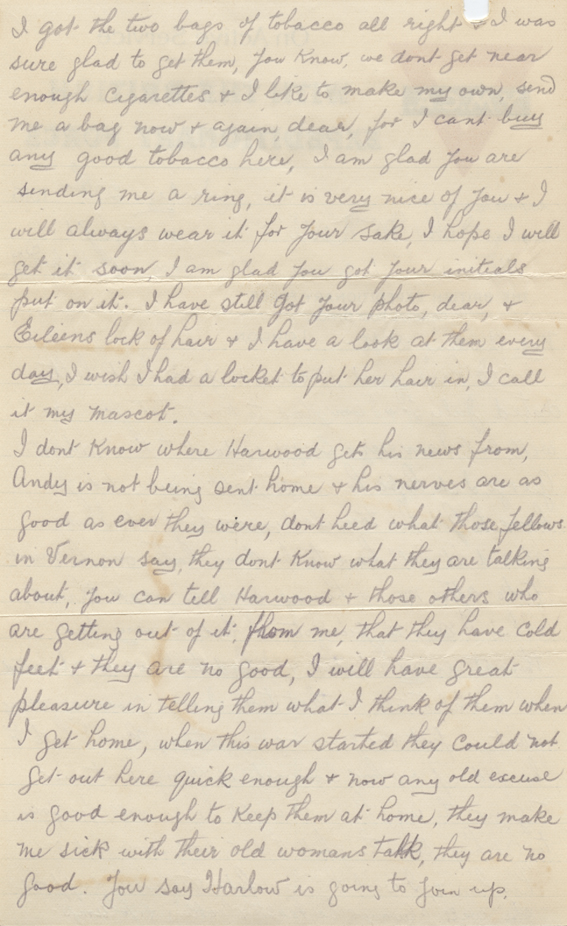 I got the two bags of tobacco all right & I was
sure glad to get them, you know, we dont get near
enough cigarettes & I like to make my own, send
me a bag now & again, dear, for I cant buy
any good tobacco here, I am glad you are
sending me a ring, it is very nice of you & I
will always wear it for your sake, I hope I will
get it soon, I am glad you got your initials
put on it. I have still got your photo, dear, &
Eileens lock of hair & I have a look at them every
day, I wish I had a locket to put her hair in, I call
it my mascot.
I dont know where Harwood gets his news from,
Andy is not being sent home & his nerves are as
good as ever they were, dont heed what those fellows
in Vernon say, they dont know what they are talking
about, you can tell Harwood & those others who
are getting out of it, from me, that they have cold
feet & they are no good, I will have great
pleasure in telling them what I think of them when
I get home, when this war started they could not
get out here quick enough & now any old excuse
is good enough to keep them at home, they make
me sick with their old womans talk, they are no
good. You say Harlow is going to join up,